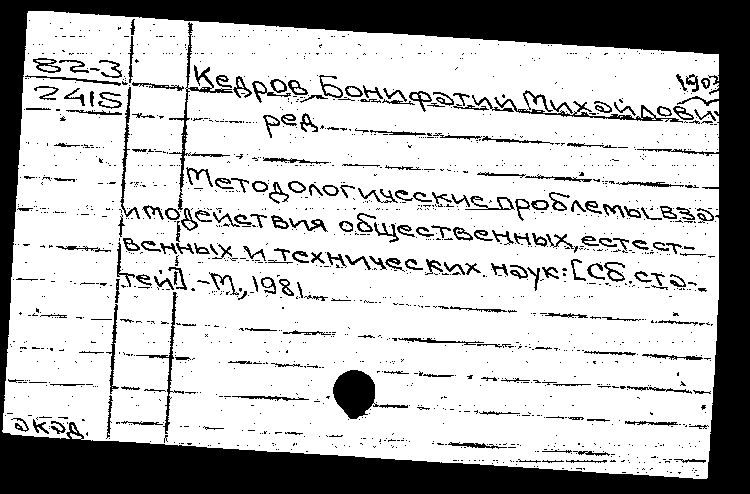 82-3
2415
1903
Кедров Бонифатий Михайлович
ред.
Методологические проблемы вза-
имодействия общественных, естест-
венных и технических наук: [Сб. ста-
тей]. - М., 1981
акад.